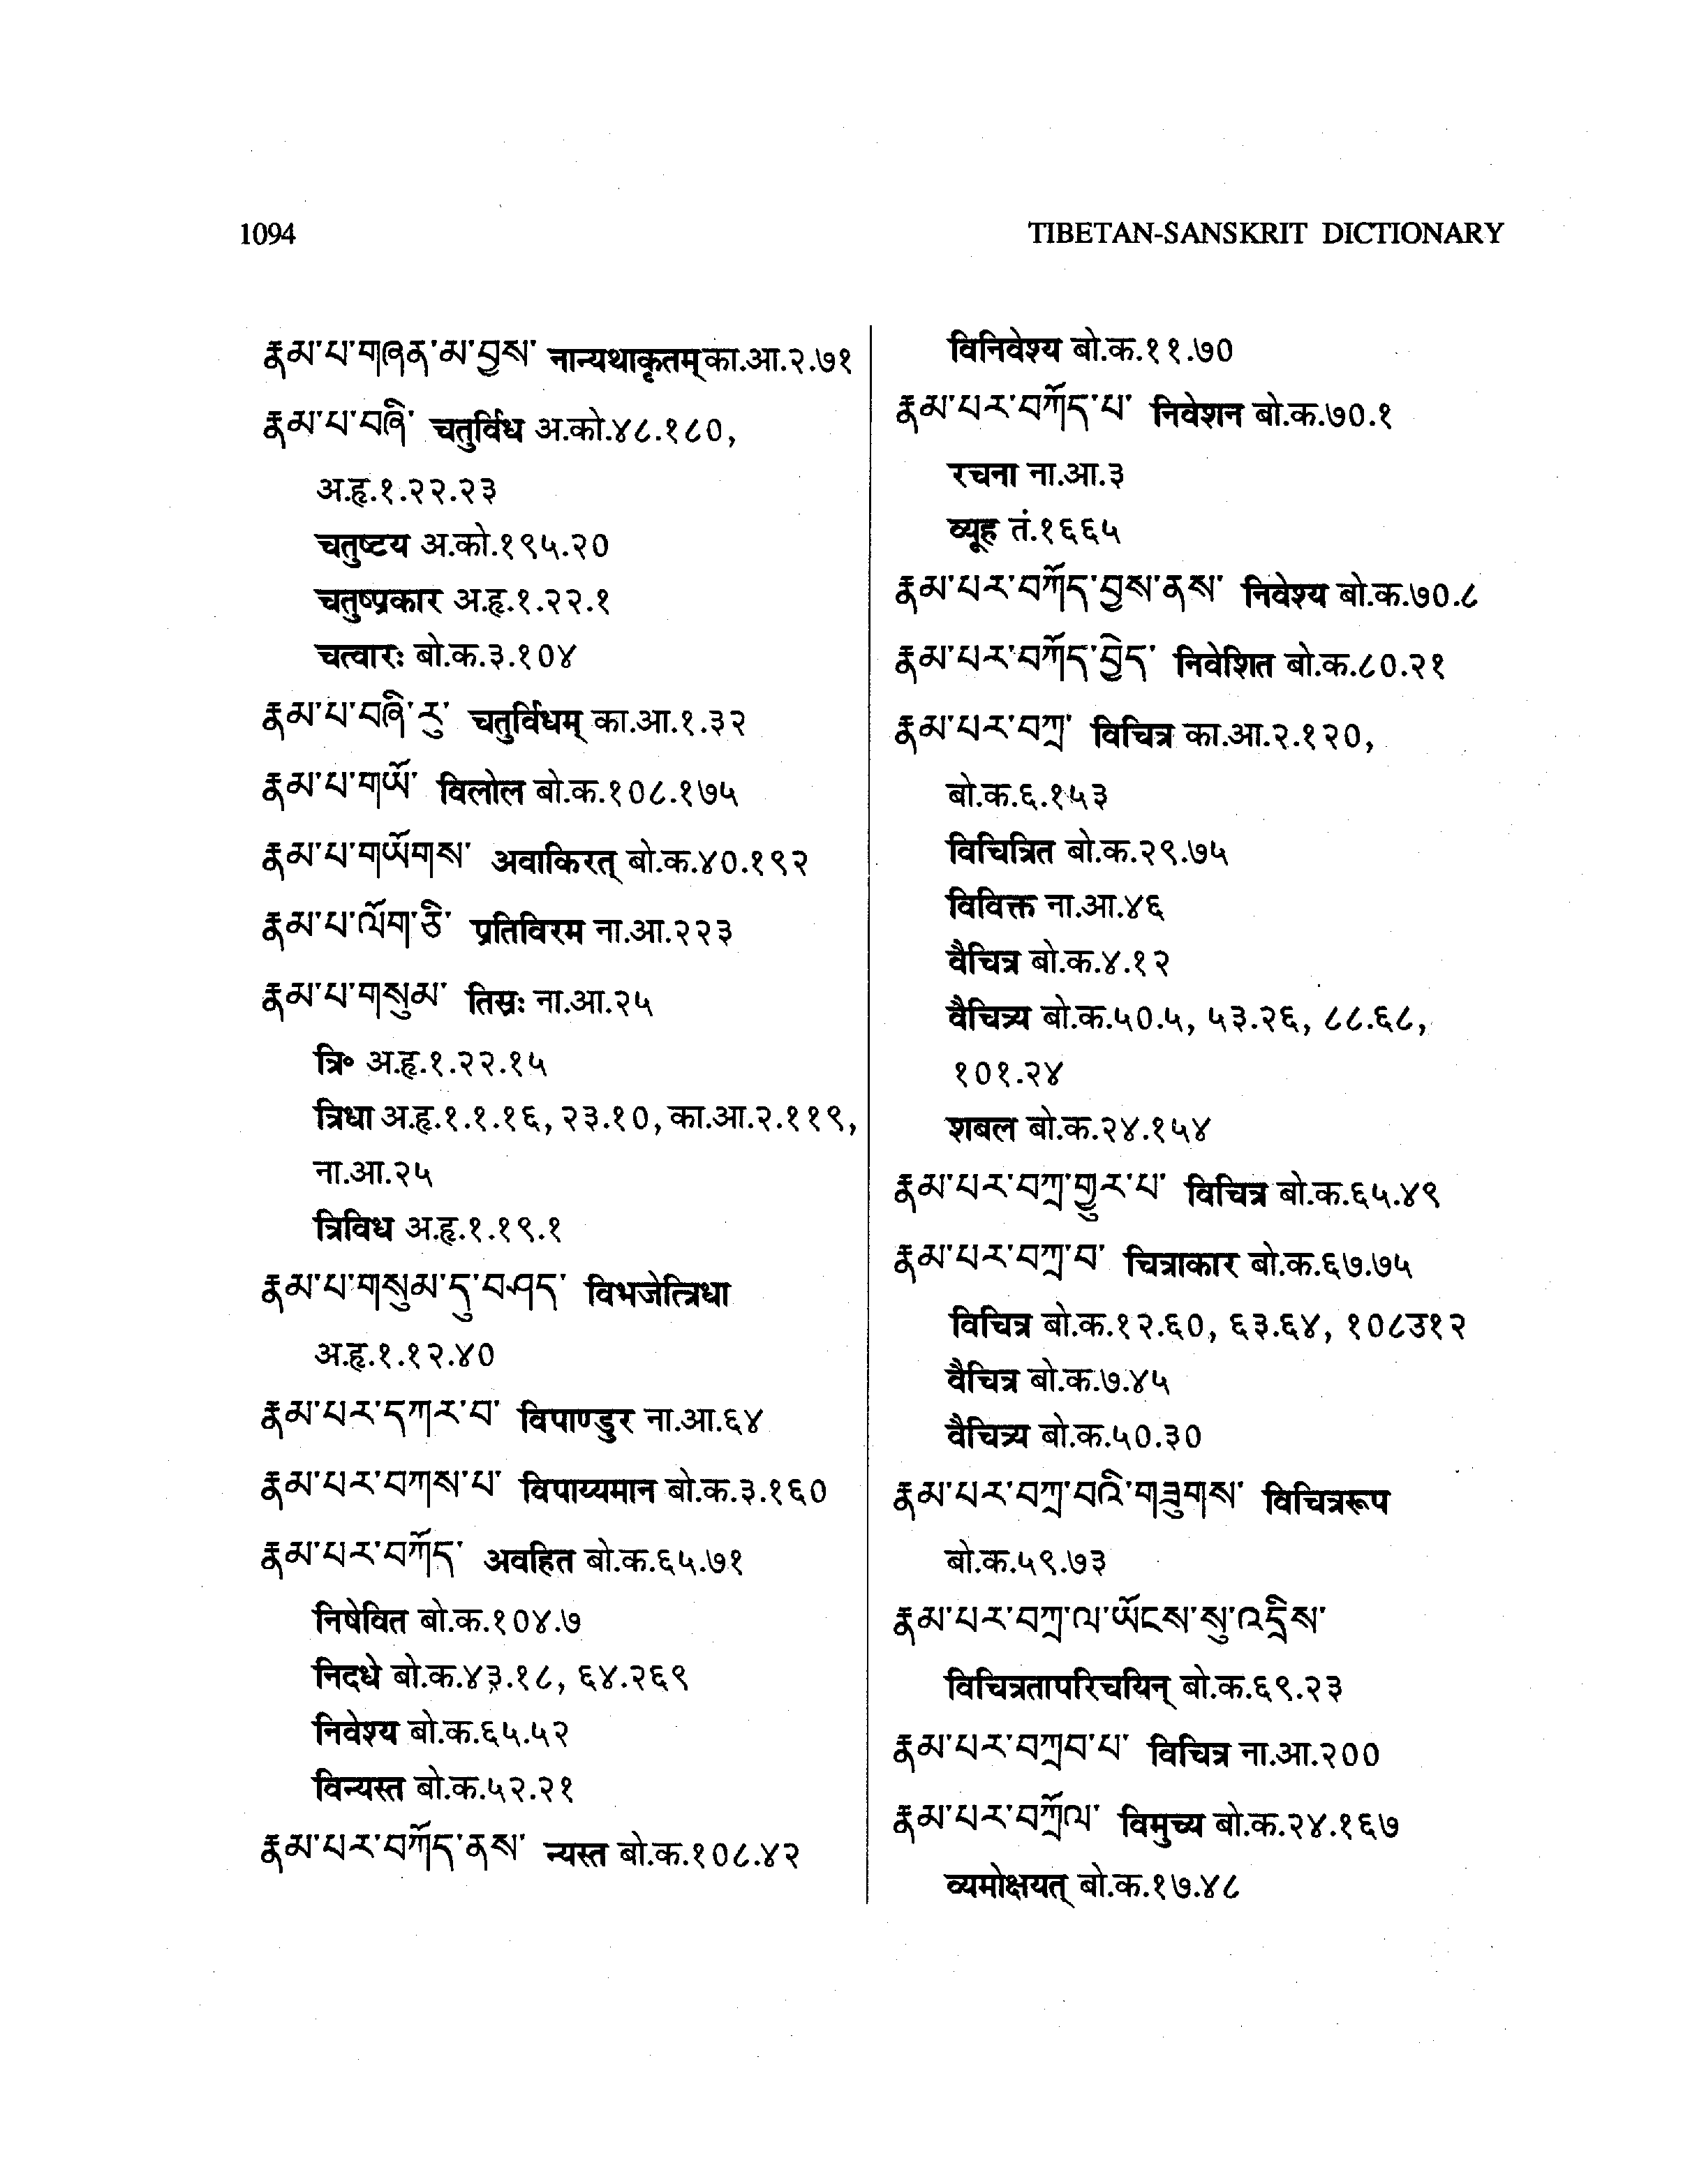 1094
TIBETAN-SANSKRIT DICTIONARY
རྣམ་པ་གཞན་མ་བྱས་ नान्यथाकृतम् का.आ.२.७१
རྣམ་པ་བཞི་ चतुर्विध अ.को.४८.१८०,
अ.हृ.१.२२.२३
चतुष्टय अ.को.१९५.२०
चतुष्प्रकार अ.हृ.१.२२.१
चत्वारः बो.क.३.१०४
རྣམ་པ་བཞི་རུ་ चतुर्विधम् का.आ.१.३२
རྣམ་པ་གཡོ་ विलोल बो.क.१०८.१७५
རྣམ་པ་གཡོགས་ अवाकिरत् बो.क.४०.१९२
རྣམ་པ་ལོག་ཅི་ प्रतिविरम ना.आ.२२३
རྣམ་པ་གསུམ་ तिस्रः ना.आ.२५
त्रि॰ अ.हृ.१.२२.१५
त्रिधा अ.हृ.१.१.१६, २३.१०, का.आ.२.११९,
ना.आ.२५
त्रिविध अ.हृ.१.१९.१
རྣམ་པ་གསུམ་དུ་བཤད་ विभजेत्त्रिधा
अ.हृ.१.१२.४०
རྣམ་པར་དཀར་བ་ विपाण्डुर ना.आ.६४
རྣམ་པར་བཀས་པ་ विपाय्यमान बो.क.३.१६०
རྣམ་པར་བཀོད་ अवहित बो.क.६५.७१
निषेवित बो.क.१०४.७
निदधे बो.क.४३.१८, ६४.२६९
निवेश्य बो.क.६५.५२
विन्यस्त बो.क.५२.२१
རྣམ་པར་བཀོད་ནས་ न्यस्त बो.क.१०८.४२
विनिवेश्य बो.क.११.७०
རྣམ་པར་བཀོད་པ་ निवेशन बो.क.७०.१
रचना ना.आ.३
व्यूह तं.१६६५
རྣམ་པར་བཀོད་བྱས་ནས་ निवेश्य बो.क.७०.८
རྣམ་པར་བཀོད་བྱེད་ निवेशित बो.क.८०.२१
རྣམ་པར་བཀྲ་ विचित्र का.आ.२.१२०,
बो.क.६.१५३
विचित्रित बो.क.२९.७५
विविक्त ना.आ.४६
वैचित्र बो.क.४.१२
वैचित्र्य बो.क.५०.५, ५३.२६, ८८.६८,
१०१.२४
शबल बो.क.२४.१५४
རྣམ་པར་བཀྲ་གྱུར་པ་ विचित्र बो.क.६५.४९
རྣམ་པར་བཀྲ་བ་ चित्राकार बो.क.६७.७५
विचित्र बो.क.१२.६०, ६३.६४, १०८उ१२
वैचित्र बो.क.७.४५
वैचित्र्य बो.क.५०.३०
རྣམ་པར་བཀྲ་བའི་གཟུགས་ विचित्ररूप
बो.क.५९.७३
རྣམ་པར་བཀྲ་ལ་ཡོངས་སུ་འདྲིས་
विचित्रतापरिचयिन् बो.क.६९.२३
རྣམ་པར་བཀྲབ་པ་ विचित्र ना.आ.२००
རྣམ་པར་བཀྲོལ་ विमुच्य बो.क.२४.१६७
व्यमोक्षयत् बो.क.१७.४८